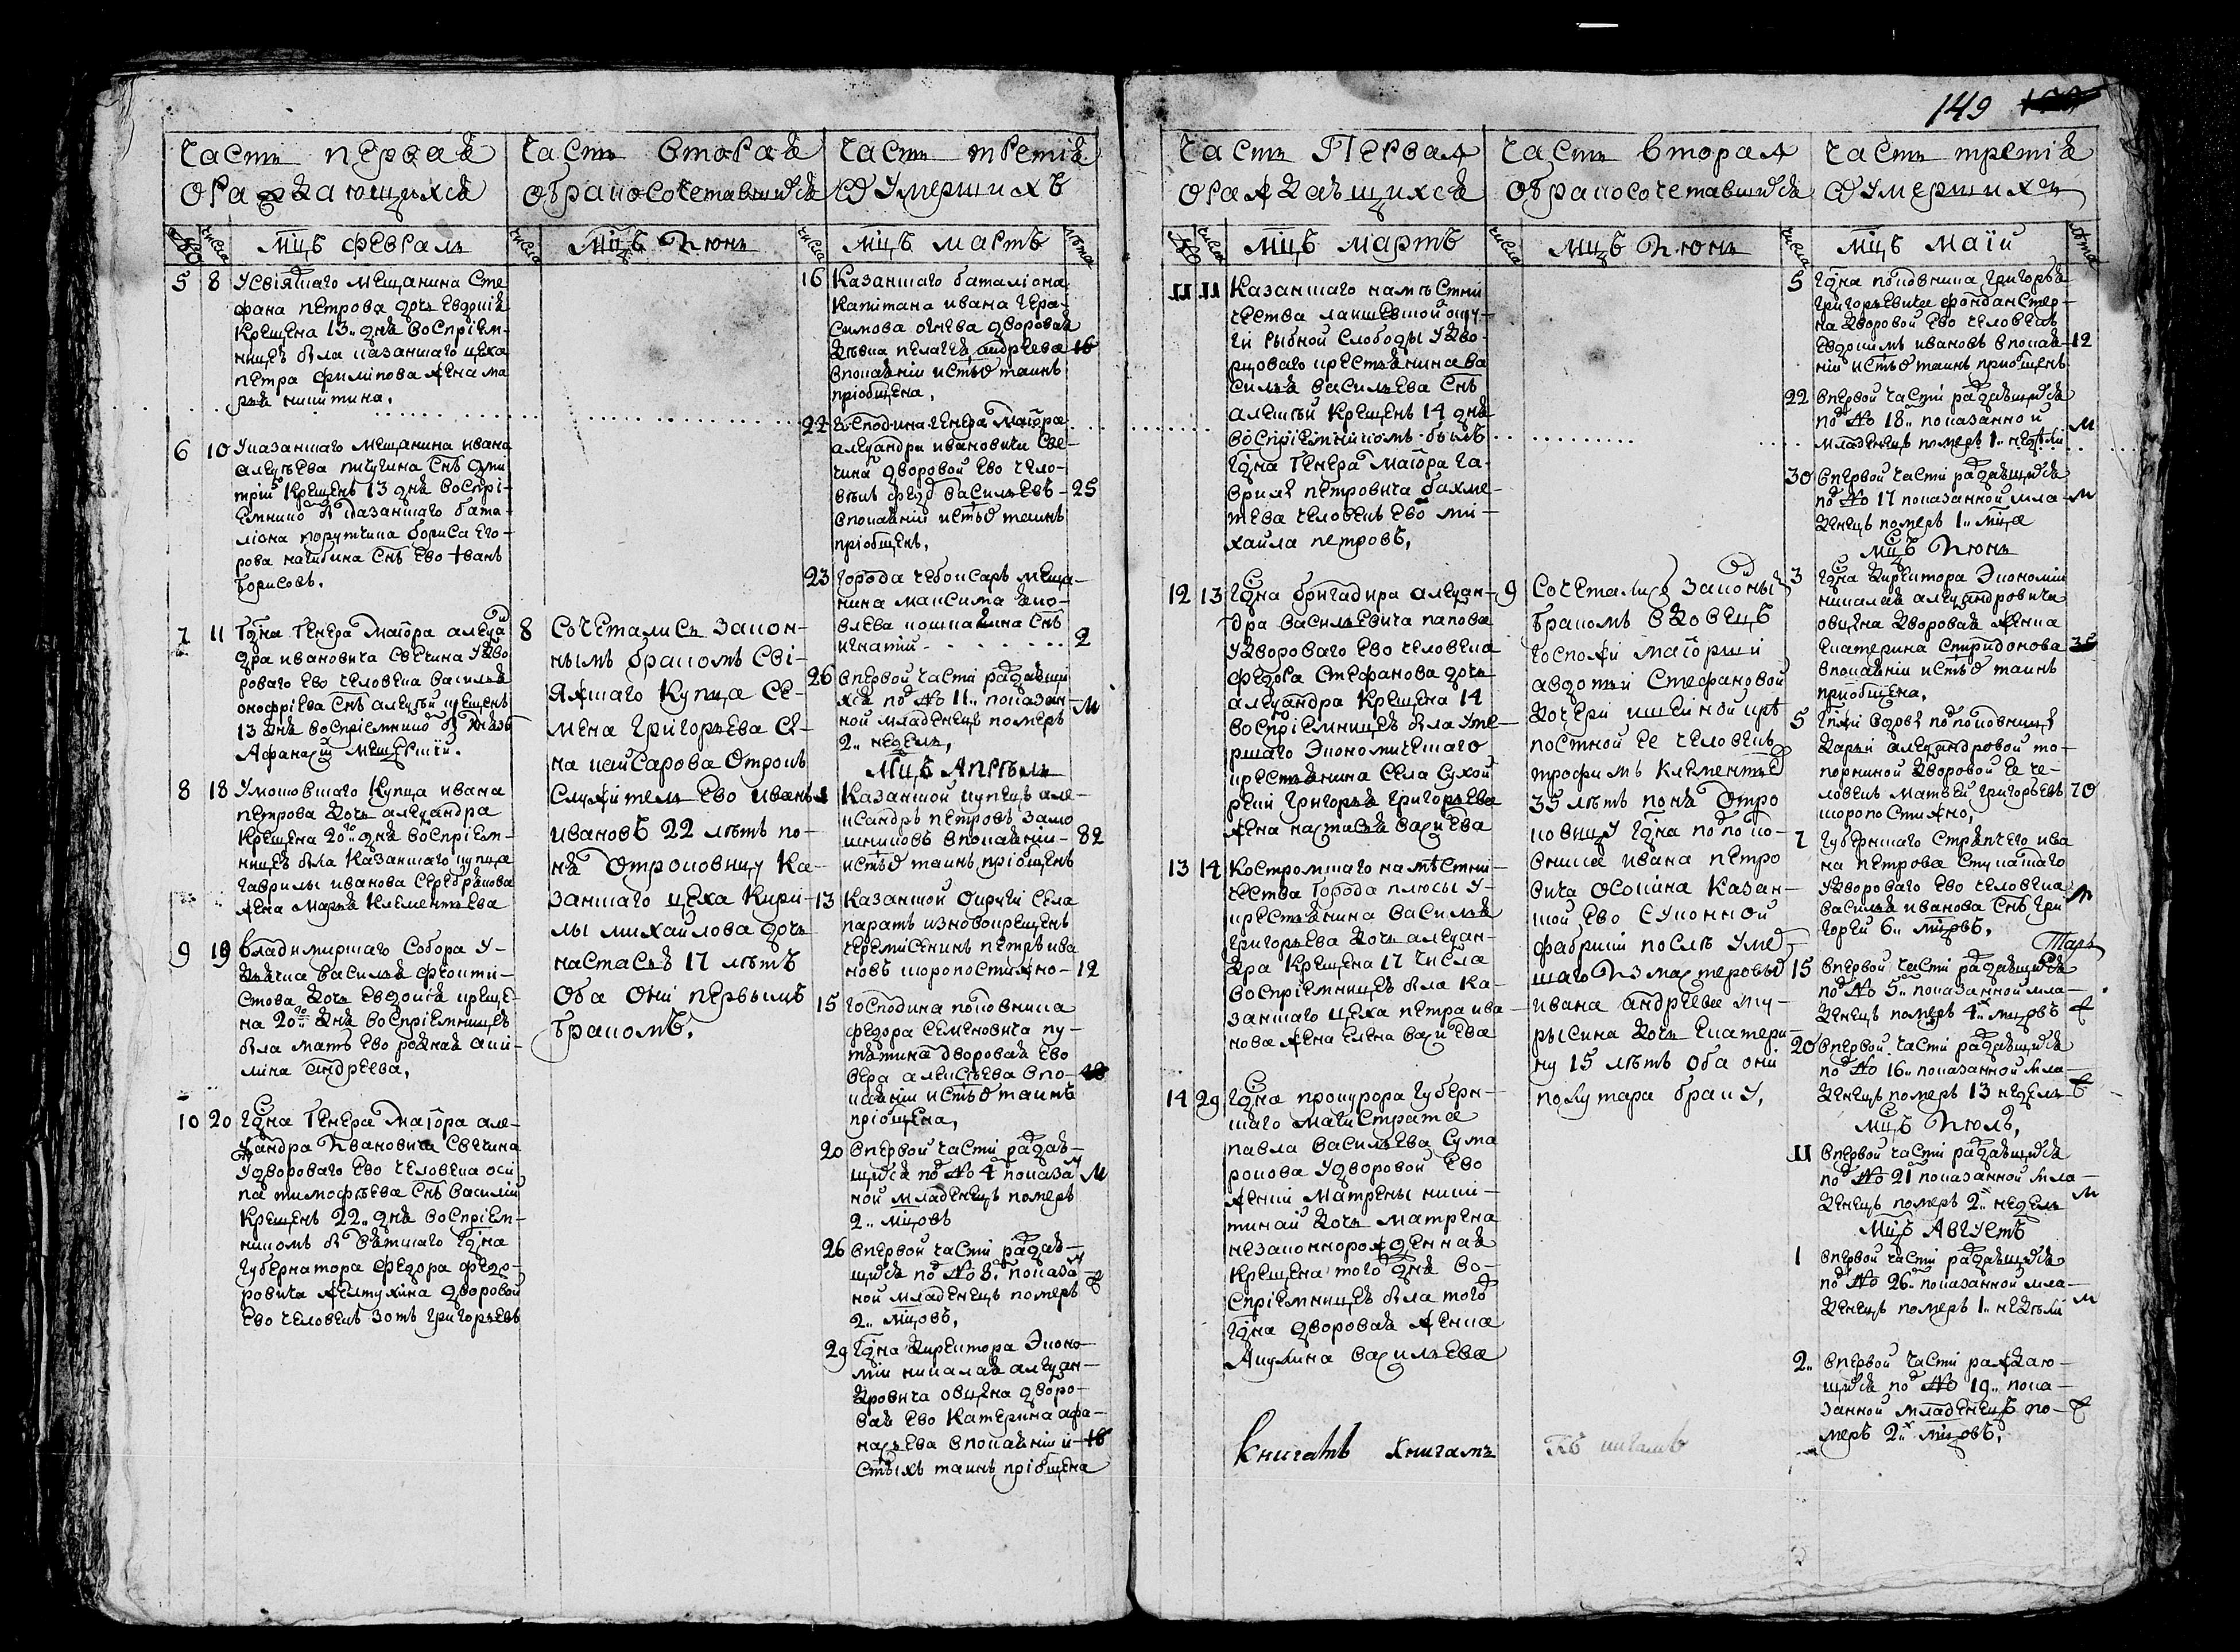 149
часть первая
часть вторая
часть третия
ораждающихся
обракосочетавшихся
Ѡ умершихъ
мцъ февраль
мцъ Июнь
мцъ мартъ
5 8 У свияжскаго мещанина сте
фана петрова дочь евдокия
крещена 13.. дня восприем-
ницею была казанскаго цеха
петра филипова жена ма
рья никитина.
6 10 У казанскаго мещанина ивана
крещенъ 13 дня воспри-
емнико б казанскаго бата-
лиона порутчика бориса его-
рова снъ ево иванъ
борисовъ.
7 11 Гдна генера маиора алеѯа
дра ивановича свечина у дво
роваго ево человека василья
онофриева снъ алеѯѣй крещенъ
13 дня восприемнико б князь
Афанасей мещерский.
8 18 купца ивана
петрова дочь алеѯандра
крещена 20.. дня восприем-
ницею была казанскаго купца
гаврилы иванова серебрякова
жена марья клементьева
9 19 владимирскаго собора у
дьячка василья феокти-
стова дочь евдокия креще-
на 20.. дня восприемницею
была мать ево родная аки-
лина андреева,
10 20 Гдна генера маиора але-
ѯандра Ивановича свечина
у двороваго ево человека оси
па тимофѣева снъ василий
крещенъ 22.. дня восприем-
никомъ б вятскаго гдна
губернатора федора федо-
ровича желтухина дворовой
ево человекъ зотъ григорьевъ
8 сочетались закон-
нымъ бракомъ сви-
яжскаго купца се-
мена григорьева се-
на кайсарова отрокъ
служитель ево иванъ
ивановъ 22 лѣтъ по-
ня отроковицу ка-
занскаго цеха кири-
лы михайлова дочь
настасья 17 лѣтъ
оба они первымъ
бракомъ.
16 казанскаго баталиона
капитана ивана гера-
симова дворовая
девка пелагея андреева 16
в покаянии и стыѯ таинъ
приобщена,
22 господина генера маиора
алеѯандра ивановича све-
чина дворовой ево чело-
векъ федо васильевъ 25
в покаянии и стыѯ таинъ
приобщенъ,
23 города чебоксаръ меща-
нина максима яко-
влева снъ
игнатий 2
26 в первой части раждаши
хся по No 11.. показан-
ной младенецъ померъ М
2.. недель,
мцъ Апрѣль
1 казанской купецъ але-
ѯандръ петровъ замо
шниковъ в покаянии 82
и стыѯ таинъ приобщенъ
13 казанской округи села
паратъ из новокрещенъ
черемисенинъ петръ ива
новъ скоропостижно 12
15 господина полковника
федора семеновича пу-
тятина дворовая ево
вера алеѯѣева в по- 48
каянии и стыѯ таинъ
приобщена,
20 в первой части раждаю-
щися по No 4 показа
ной младенецъ померъ М
2.. мцовъ
26 в первой части раждаю-
щися по No 8, показа
ной младенецъ померъ
2.. мцовъ,
29 гдна директора эконо-
мии николая алеѯан-
дровича овцына дворо-
вая ево катерина афа-
насьева в покаянии и 16
стыхъ таинъ приобщена
часть Первая
часть вторая
часть третия
ораждающихся
обракосочетавшихся
Ѡ умершихъ
мцъ мартъ
мцъ Июнь
мцъ маий
11 11 казанскаго намѣстни
чества лаишевской окру-
ги рыбной слободы у дво-
рцоваго крестьянина ва
силья васильева снъ
алеѯѣй крещенъ 14 дня
восприемникомъ былъ
гдна генера маиора га-
врилы петровича бахме-
тева человекъ ево ми-
хайла петровъ,
12 13 Гдна бригадира алеѯан-
дра васильевича папова
у двороваго ево человека
федора стефанова дочь
алеѯандра крещена 14
восприемницею была уме-
ршаго экономическаго
крестьянина села сухой
реки григорья григорьева
жена настасья васильева
13 14 костромскаго намѣстни-
чества города плюсы у
крестьянина василья
григорьева дочь алеѯан-
дра крещена 17 числа
восприемницею была ка-
занскаго цеха петра ива
нова жена елена васильева
14 29 Гдна прокурора губерн-
скаго магистрата
павла васильева сума
рокова у дворовой ево
женки матрены ники-
тиной дочь матрена
незаконнорожденная
крещена того дня во-
сприемницею была того
гдна дворовая женка
Акулина васильева
книгамъ книгамъ
9 сочетались законны
бракомъ вдовецъ
госпожи маиорши
авдотьи стефановой
дочери ишеиной крѣ
постной ее человекъ
трофимъ клементье
35 лѣтъ поня отро
ковицу гдна полко-
вника ивана петро
вича осокина казан-
ской ево суконной
фабрики послѣ умер
шаго Из мастеровы
ивана андреева ту-
рысина дочь екатери-
ну 15 лѣтъ оба они
полутора браку,
5 гдна полковника григорья
григорьевича
на дворовой ево человекъ
евдокимъ ивановъ в покая- 12
нии и стыѯ таинъ приобщенъ
22 в первой части раждающися
по No 18.. показанной М
младенецъ померъ 1.. недѣли
30 в первой части раждающися
по No 17 показанной мла- М
денецъ померъ 1.. мца
мцъ Июнь
3 гдна директора экономии
николая алеѯандровича
овцына дворовая женка
екатерина спиридонова 35
в покаянии и стыѯ таинъ
приобщена,
5 гпжи вдовы подполковницы
дарьи алеѯандровой то-
порниной дворовой ее че-
ловекъ матвей григорьевъ 70
скоропостижно,
7 губернскаго стряпчего ива
на петрова ступацкаго
у двороваго ево человека
василья иванова снъ гри М
горей 6.. мцовъ,
15 в первой части раждающися
по No 5.. показанной мла-
денецъ померъ 4.. мцовъ
20 в первой части раждающися
по No 16.. показанной мла-
денецъ померъ 13 недель
мцъ Июль,
11 в первой части раждающися
по No 21 показанной мла-
денецъ померъ 2.. недель М
мцъ Августъ
1 в первой части раждающися
по No 26.. показанной мла-
денецъ померъ 1.. недѣли М
2.. в первой части раждаю-
щися по No 19.. пока-
занной младенецъ по-
меръ 2.. мцовъ,